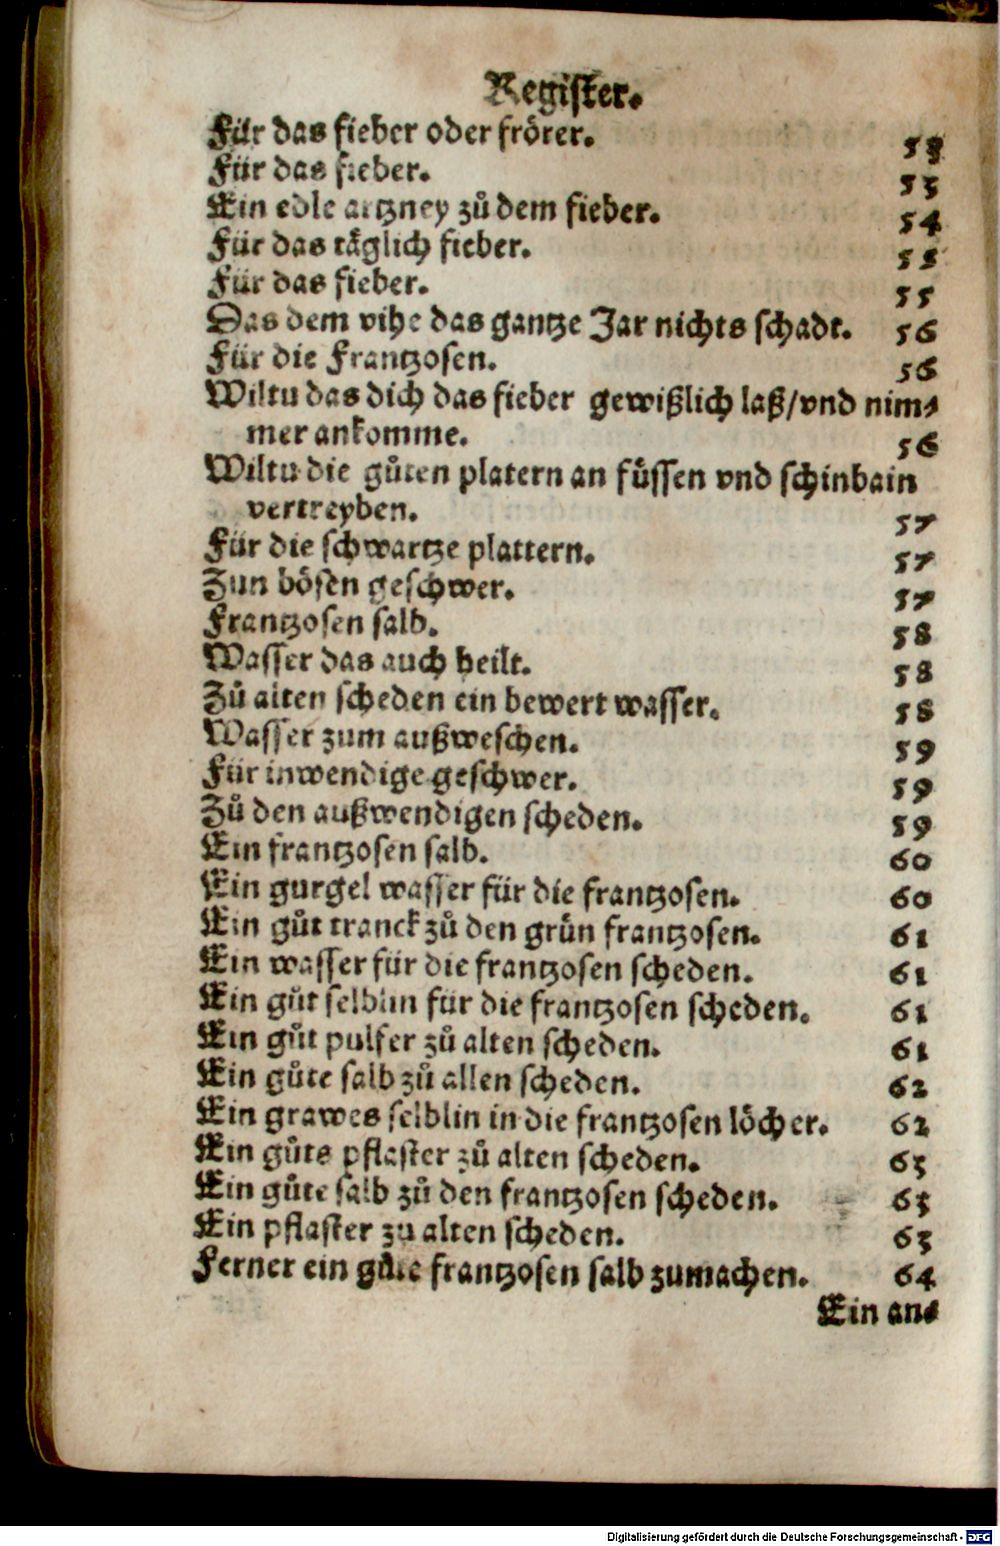 Register.
Für das fieber oder frörer. 53
Für das fieber. 53
Ein edle artzney zů dem fieber. 54
Für das täglich fieber. 55
Für das fieber. 55
Das dem vihe das gantze Jar nichts schadt. 56
Für die Frantzosen. 56
Wiltu das dich das fieber gewißlich laß/vnd nim⸗
mer ankomme. 56
Wiltu die gůten platern an füssen vnd schinbain
vertreyben. 57
Für die schwartze plattern. 57
Zun bösen geschwer. 57
Frantzosen salb. 58
Wasser das auch heilt. 58
Zů alten scheden ein bewert wasser. 58
Wasser zum außweschen. 59
Für inwendige geschwer. 59
Zů den außwendigen scheden. 59
Ein frantzosen salb. 60
Ein gurgel wasser für die frantzosen. 60
Ein gůt tranck zů den grün frantzosen. 61
Ein wasser für die frantzosen scheden. 61
Ein gůt selblin für die frantzosen scheden. 61
Ein gůt pulfer zů alten scheden. 61
Ein gůte salb zů allen scheden. 62
Ein grawes selblin in die frantzosen löcher. 62
Ein gůts pflaster zů alten scheden. 63
Ein gůte salb zů den frantzosen scheden. 63
Ein pflaster zu alten scheden. 63
Ferner ein gůte frantzosen salb zumachen. 64
Ein an⸗
Digitalisierung gefördert durch die Deutsche Forschungsgemeinschaft - DFG